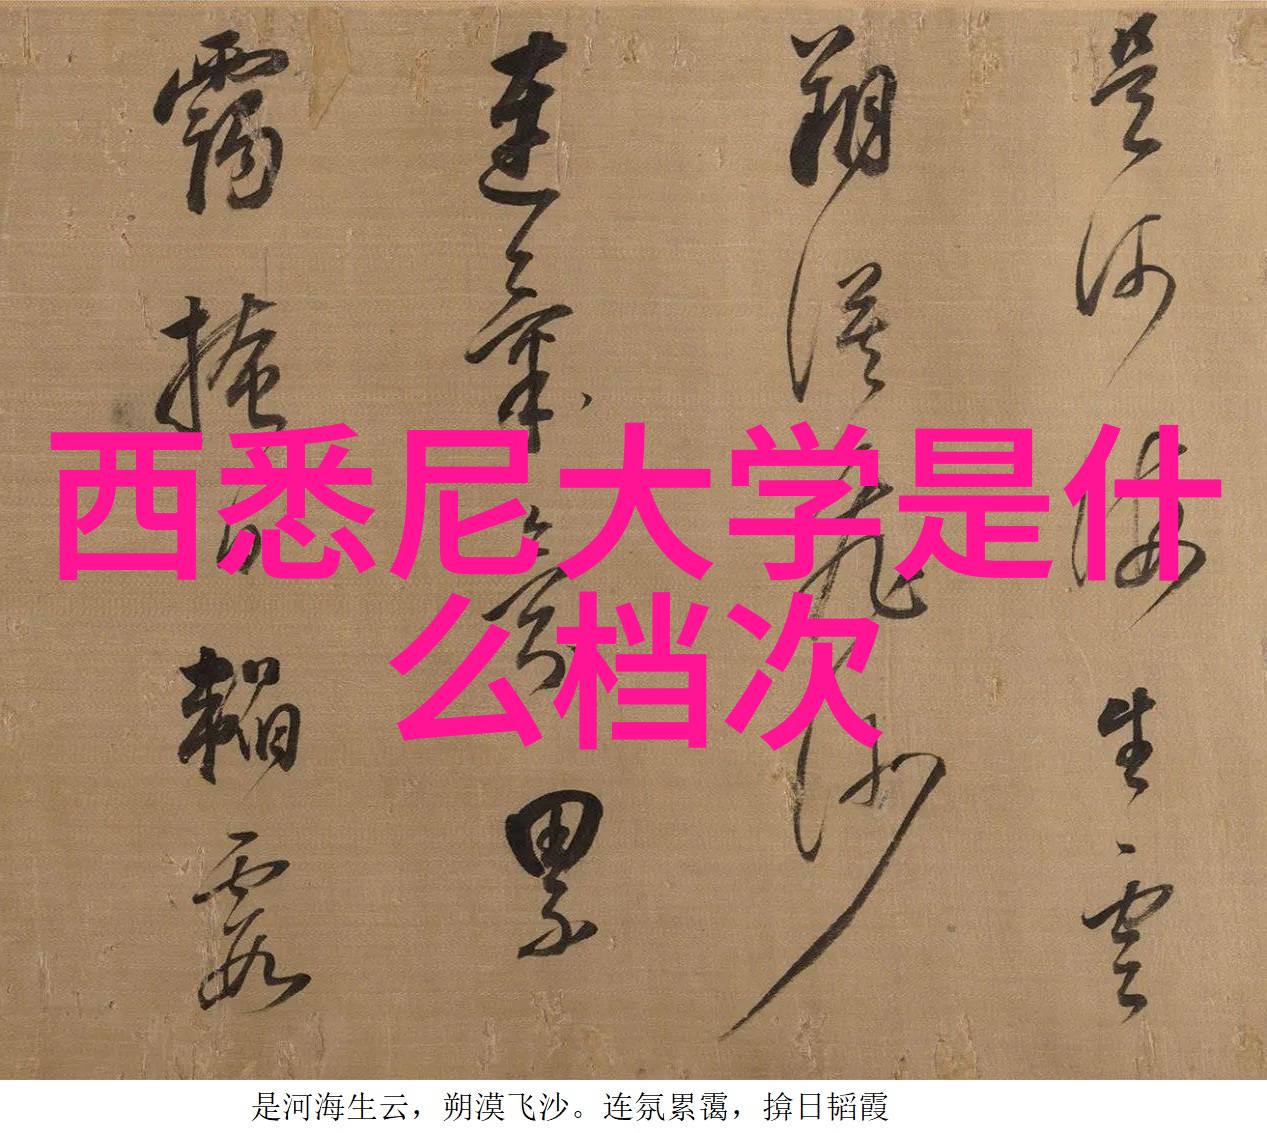 西悉尼大学是什
么档次
是河海生雲
朔漠飛沙
連氣氛累
靄掩日韜霞
是河海生云，朔漠飞沙。连氛累霭，揜日韬霞